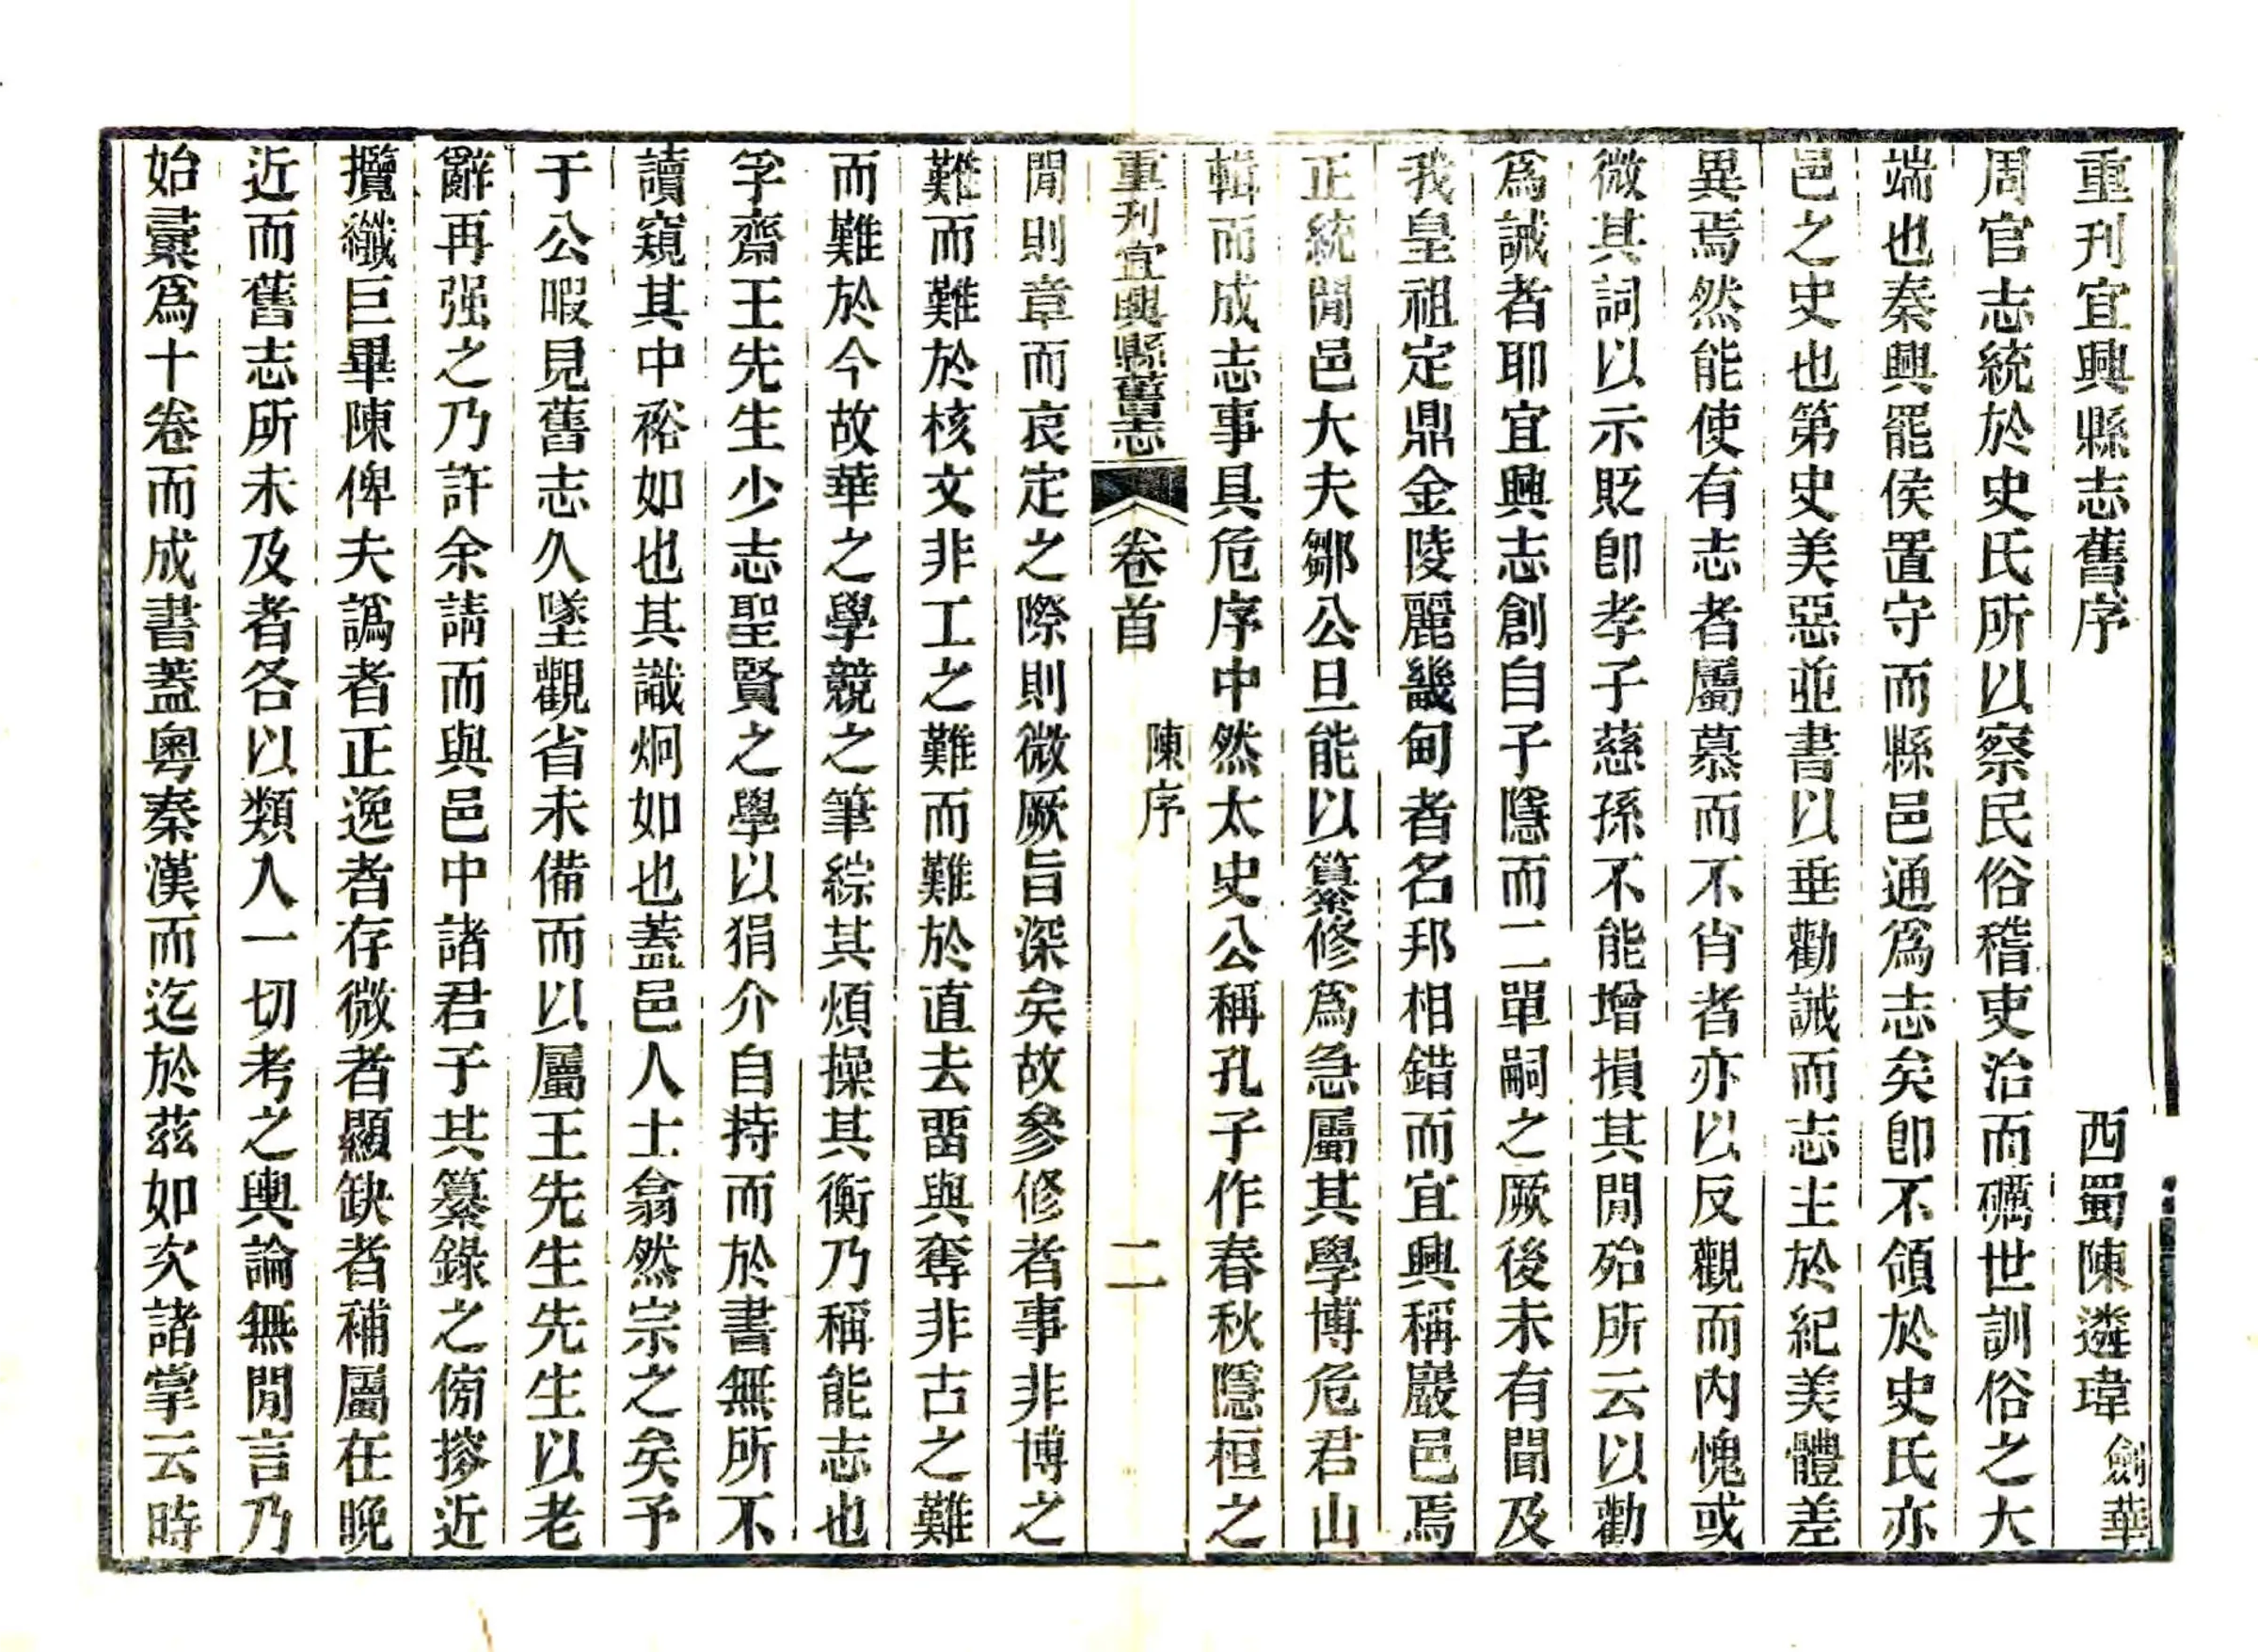 重刊宜興縣志舊序 西蜀陳遴瑋劍華
周官志統於史氏所以察民俗稽吏治而礪世訓俗之大
端也秦興罷侯置守而縣邑通爲志矣卽不領於史氏亦
邑之史也第史美惡並書以垂勸誡而志主於紀美體差
異焉然能使有志者屬慕而不肖者亦以反觀而內愧或
微其詞以示貶卽孝子慈孫不能增損其閒殆所云以勸
爲誡者耶宜興志創自子隱而二單嗣之厥後未有聞及
我皇祖定鼎金陵麗畿甸者名邦相錯而宜興稱嚴邑焉
正統閒邑大夫鄒公旦能以纂修爲急屬其學博危君山
輯而成志事具危序中然太史公稱孔子作春秋隱桓之
重刊宜興縣舊志 卷首 陳序 二
閒則章而哀定之際則微厥旨深矣故參修者事非博之
難而難於核文非工之難而難於直去畱與奪非古之難
而難於今故華之學競之筆綜其煩操其衡乃稱能志也
孚齋王先生少志聖賢之學以狷介自持而於書無所不
讀窺其中裕如也其識炯如也蓋邑人士翕然宗之矣予
于公暇見舊志久墜觀省未備而以屬王先生先生以老
辭再强之乃許余請而與邑中諸君子其纂錄之傍摉近
攬纖巨畢陳俾夫譌者正逸者存微者顯缺者補屬在晚
近而舊志所未及者各以類入一切考之輿論無閒言乃
始彙爲十卷而成書蓋粵秦漢而迄於茲如次諸掌云時